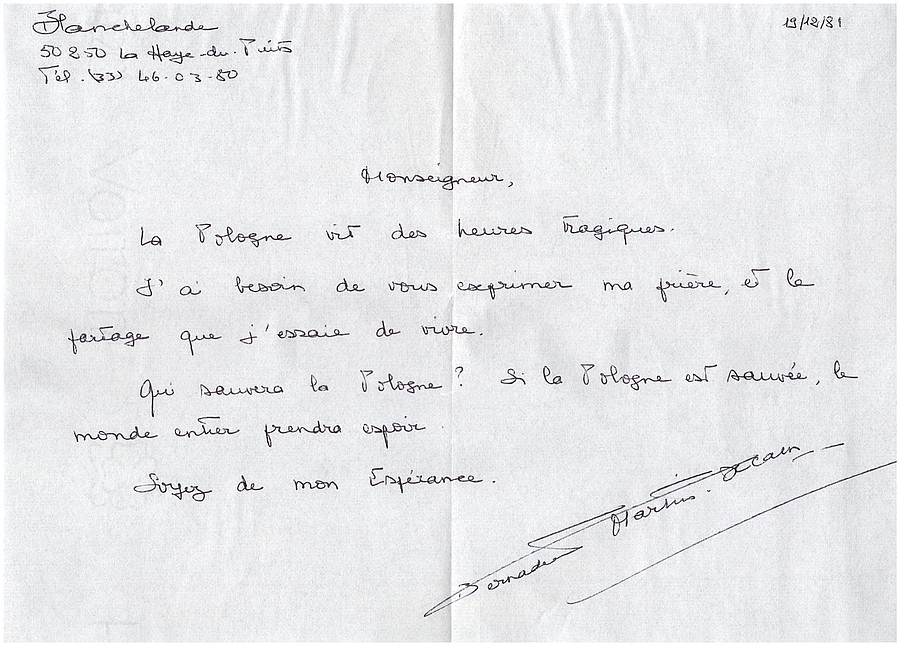 Blanchelande
19/12/81
50250 La Haye-du-Puits
Tél. (33) 46-03-80
Monseigneur,
La Pologne vit des heures tragiques.
J'ai besoin de vous exprimer ma prière, et le
partage que j'essaie de vivre.
Qui sauvera la Pologne ? Si la Pologne est sauvée, le
monde entier prendra espoir.
Soyez de mon Espérance.